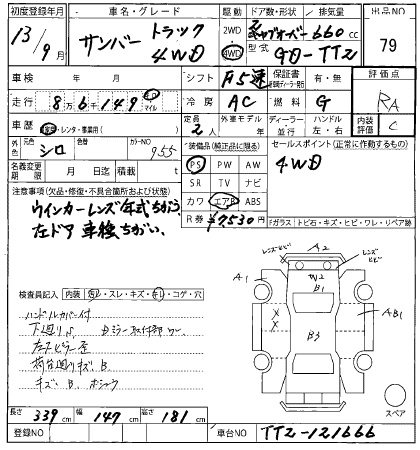 初度登録年月 車名・グレード 駆動 ドア数・形状 排気量 出品NO
13/9月 サンバー トラック 4WD 2WD 4WD キャブオーバー 660 cc 79
型式 GD-TT2
車検 年 月 シフト F5速 保証書 有・無 評価点
走行 8万6千149 キロ マイル 冷房 AC 燃料 G RA
車歴 自家用・レンタ・事業用( ) 定員 2人 外車モデル 年 ディーラー・並行 ハンドル 左・右 内装 C
外色 シロ 色替 カラーNO 955 装備品(純正品に限る) セールスポイント(正常に作動するもの)
名義変更期限 月 日迄 積載 t PS PW AW 4WD
SR TV ナビ
注意事項(欠品・修復・不具合箇所および状態) カワ エアB ABS
ウインカーレンズ年式ちがう R券 ¥7530円 Fガラス トビ石・キズ・ヒビ・ワレ・リペア跡
左ドア車検ちがい
レンズヒビ A2 レンズヒビ
A1 W2 B1
検査員記入 内装 汚レ・スレ・キズ・キレ・コゲ・穴 AB1
ハンドルカバー付 B3
下廻りS
荷台廻りキズB
キズ B
長さ 339 cm 幅 147 cm 高さ 181 cm スペア
登録NO 車台NO TT2-121666